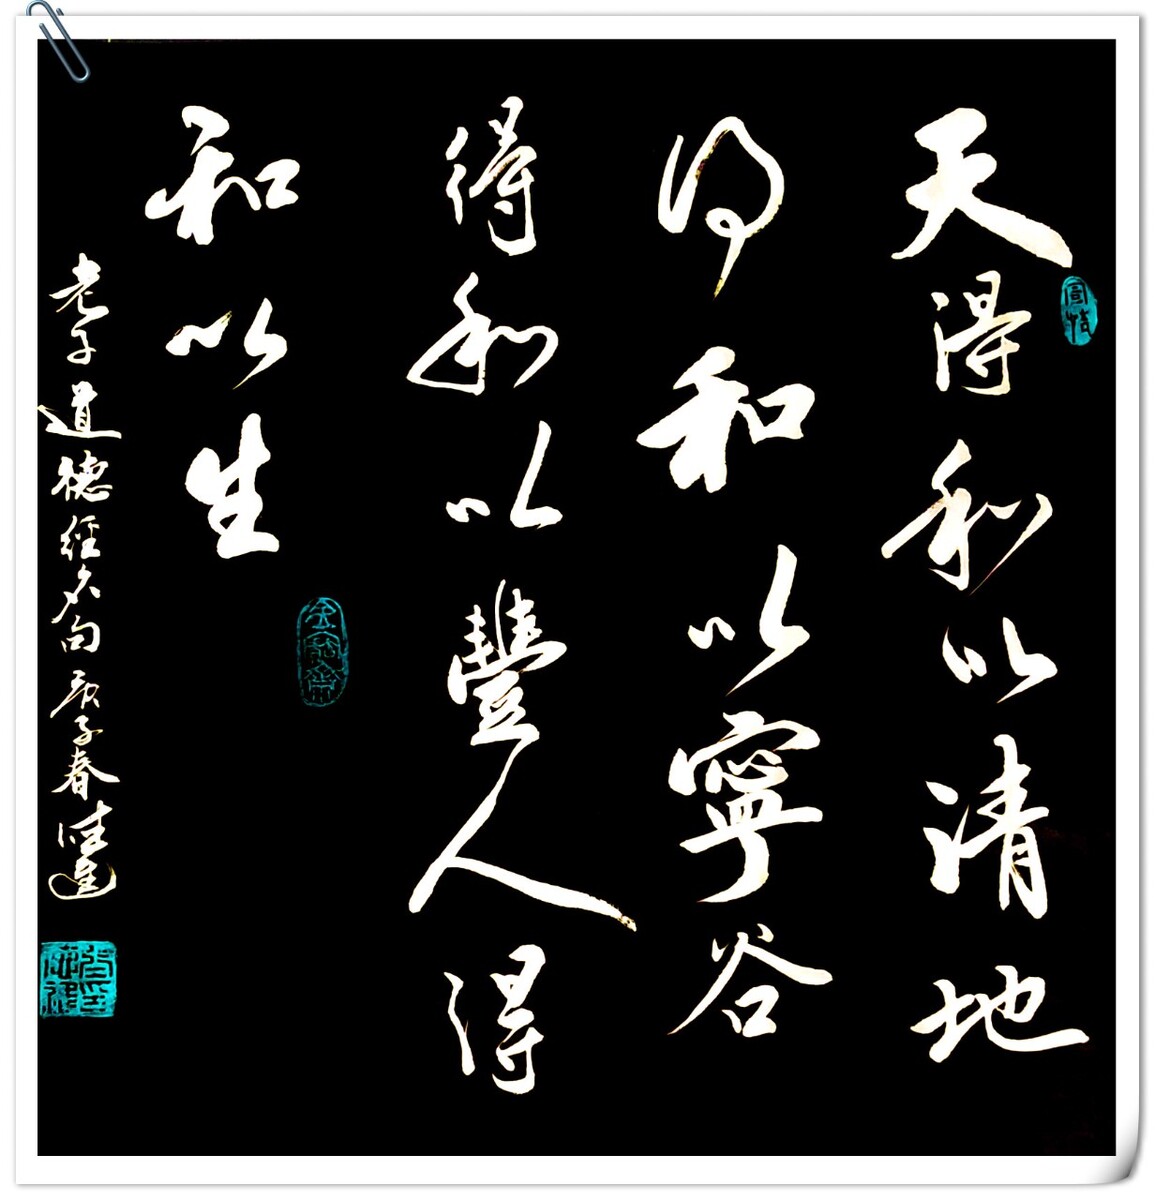 天得和以清地
得和以寧谷
得和以豐人得
和以生
老子道德經名句庚子春